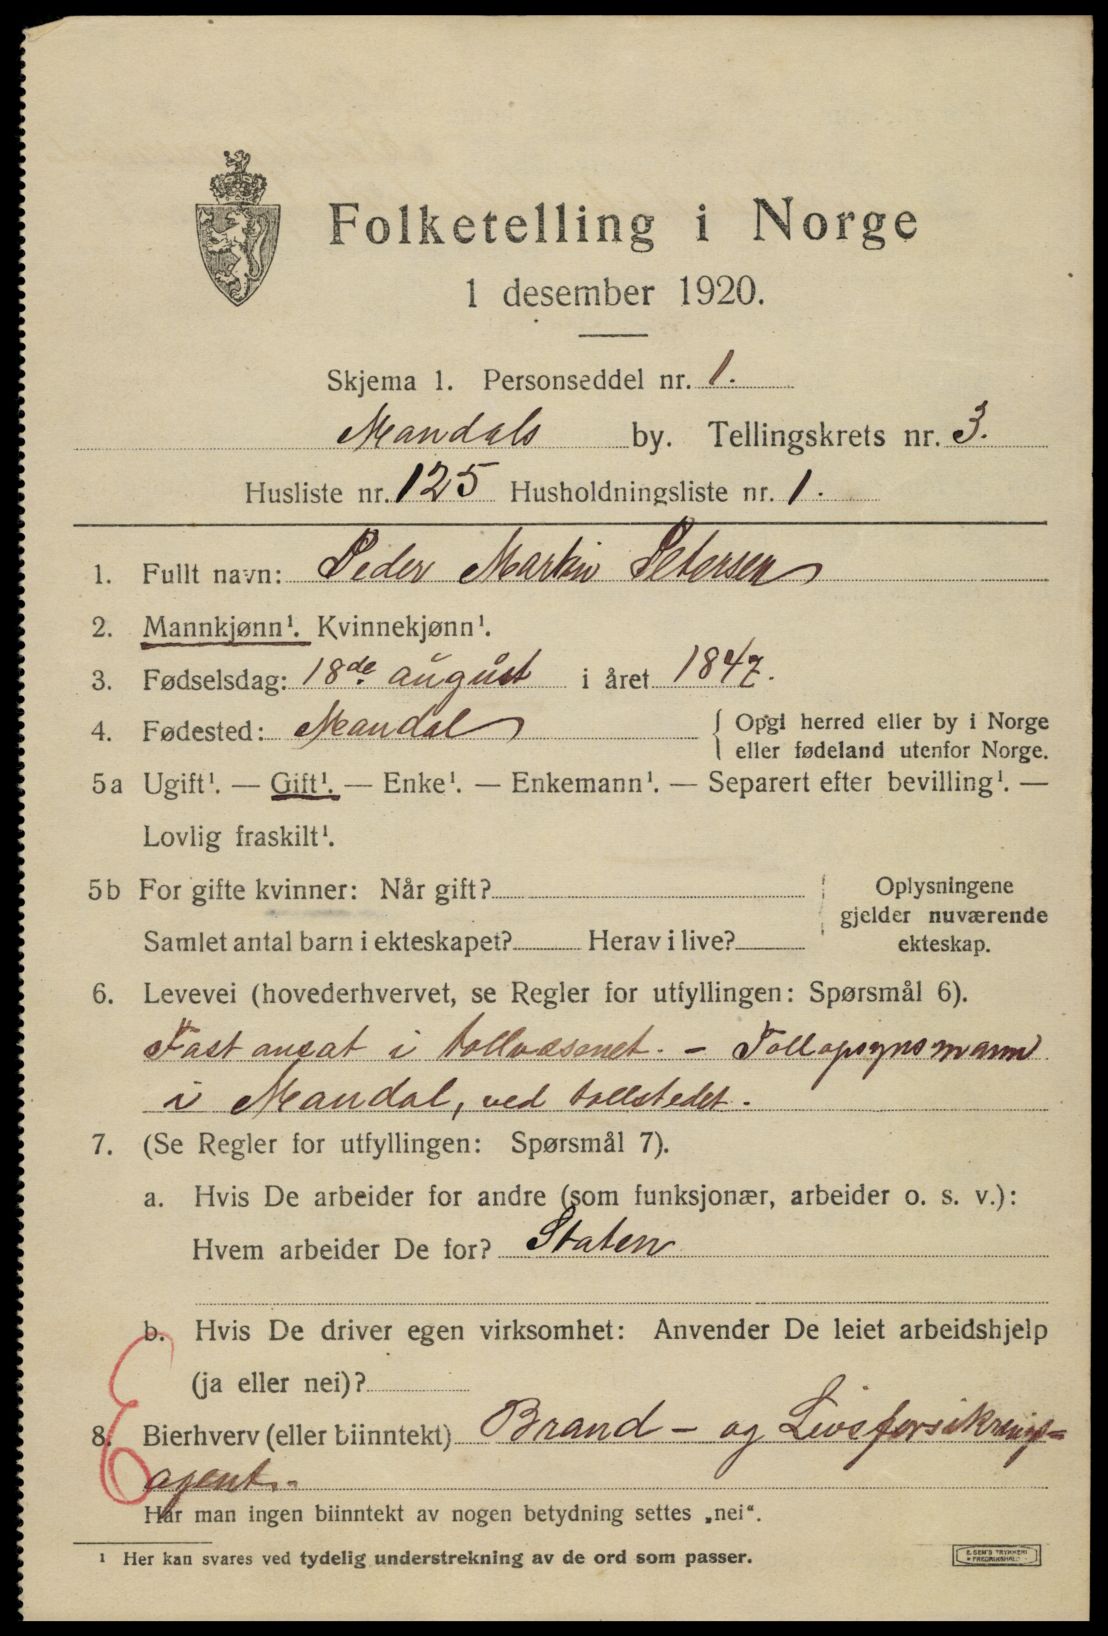 Folketelling i Norge
1 desember 1920.
Skjema 1. Personseddel nr. 1.
Mandals by. Tellingskrets nr. 3.
Husliste nr. 125 Husholdningsliste nr. 1.
1. Fullt navn: Peder Martin Petersen
2. Mannkjønn¹. Kvinnekjønn¹.
3. Fødselsdag: 18de august i året 1847.
4. Fødested: Mandal { Opgi herred eller by i Norge
eller fødeland utenfor Norge.
5a Ugift¹. — Gift¹. — Enke¹. — Enkemann¹. — Separert efter bevilling¹. —
Lovlig fraskilt¹.
5b For gifte kvinner: Når gift?
Samlet antal barn i ekteskapet? Herav i live?
Oplysningene
gjelder nuværende
ekteskap.
6. Levevei (hovederhvervet, se Regler for utfyllingen: Spørsmål 6).
Fast ansat i tollvæsenet. – Tollopsynsmann
i Mandal, ved tollstedet.
7. (Se Regler for utfyllingen: Spørsmål 7).
a. Hvis De arbeider for andre (som funksjonær, arbeider o. s. v.):
Hvem arbeider De for? Staten
b. Hvis De driver egen virksomhet: Anvender De leiet arbeidshjelp
(ja eller nei)?
8. Bierhverv (eller biinntekt) Brand – og Livsforsikrings=
agent.
Har man ingen biinntekt av nogen betydning settes „nei“.
¹ Her kan svares ved tydelig understrekning av de ord som passer.
E. SEM'S TRYKKERI
FREDRIKSHALD